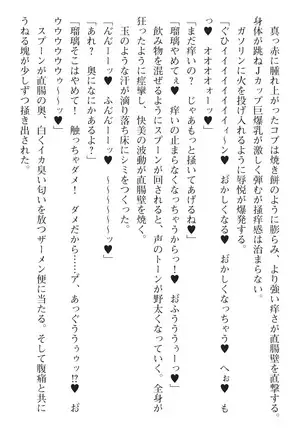 真っ赤に腫れ上がったコブは焼き餅のように膨らみ、より強い痒さが直腸壁を直撃する。
身体が跳ねJカップ巨爆乳が激しく弾むが掻痒感は治まらない。
ガソリンに火を投げ入れるように辱悦が爆発する。
「ぐひィイイイイイイイィィ～ン♥ おかしくなる♥ おかしくなっちゃう♥ へぉ♥ も
っ♥ オオオオォーッ♥」
「まだ痒いの? じゃあもっと掻いてあげるね♥」
「瑠璃やめてぇ♥ 痒いの止まらなくなっちゃうからっ!♥ おふううぅぅーっ♥」
飲み物を混ぜるようにスプーンを回されると、声のトーンが野太くなっていく。全身が
狂ったように痙攣し、快美の波動が直腸壁を焼く。
「ふんんーーッ♥ ふんんーーっ♥ ～～～～～ッ♥」
玉のような汗が滴り落ち床にシミをつくった。
「あれ? 奥になにかあるよ?」
「瑠璃そこはやめて!♥ 触っちゃダメ! ダメだから……ア、あっぐううぅゥッ!?♥ お
ウウウゥウゥゥ～～ッ♥」
スプーンが直腸の奥、白くイカ臭い匂いを放つザーメン便にあたる。そして腹痛と共に
うねる塊が少しずつ掻き出された。